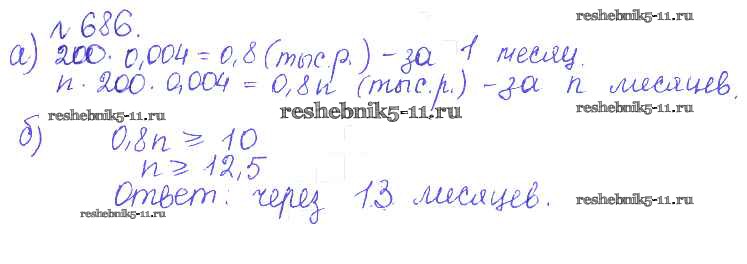 № 686. reshebnik5-11.ru
а) 200 · 0,004 = 0,8 (тыс.р.) – за 1 месяц.
n · 200 · 0,004 = 0,8n (тыс.р.) – за n месяцев.
reshebnik5-11.ru reshebnik5-11.ru reshebnik5-11.ru
б) 0,8n ⩾ 10
n ⩾ 12,5
Ответ: через 13 месяцев. reshebnik5-11.ru
reshebnik5-11.ru